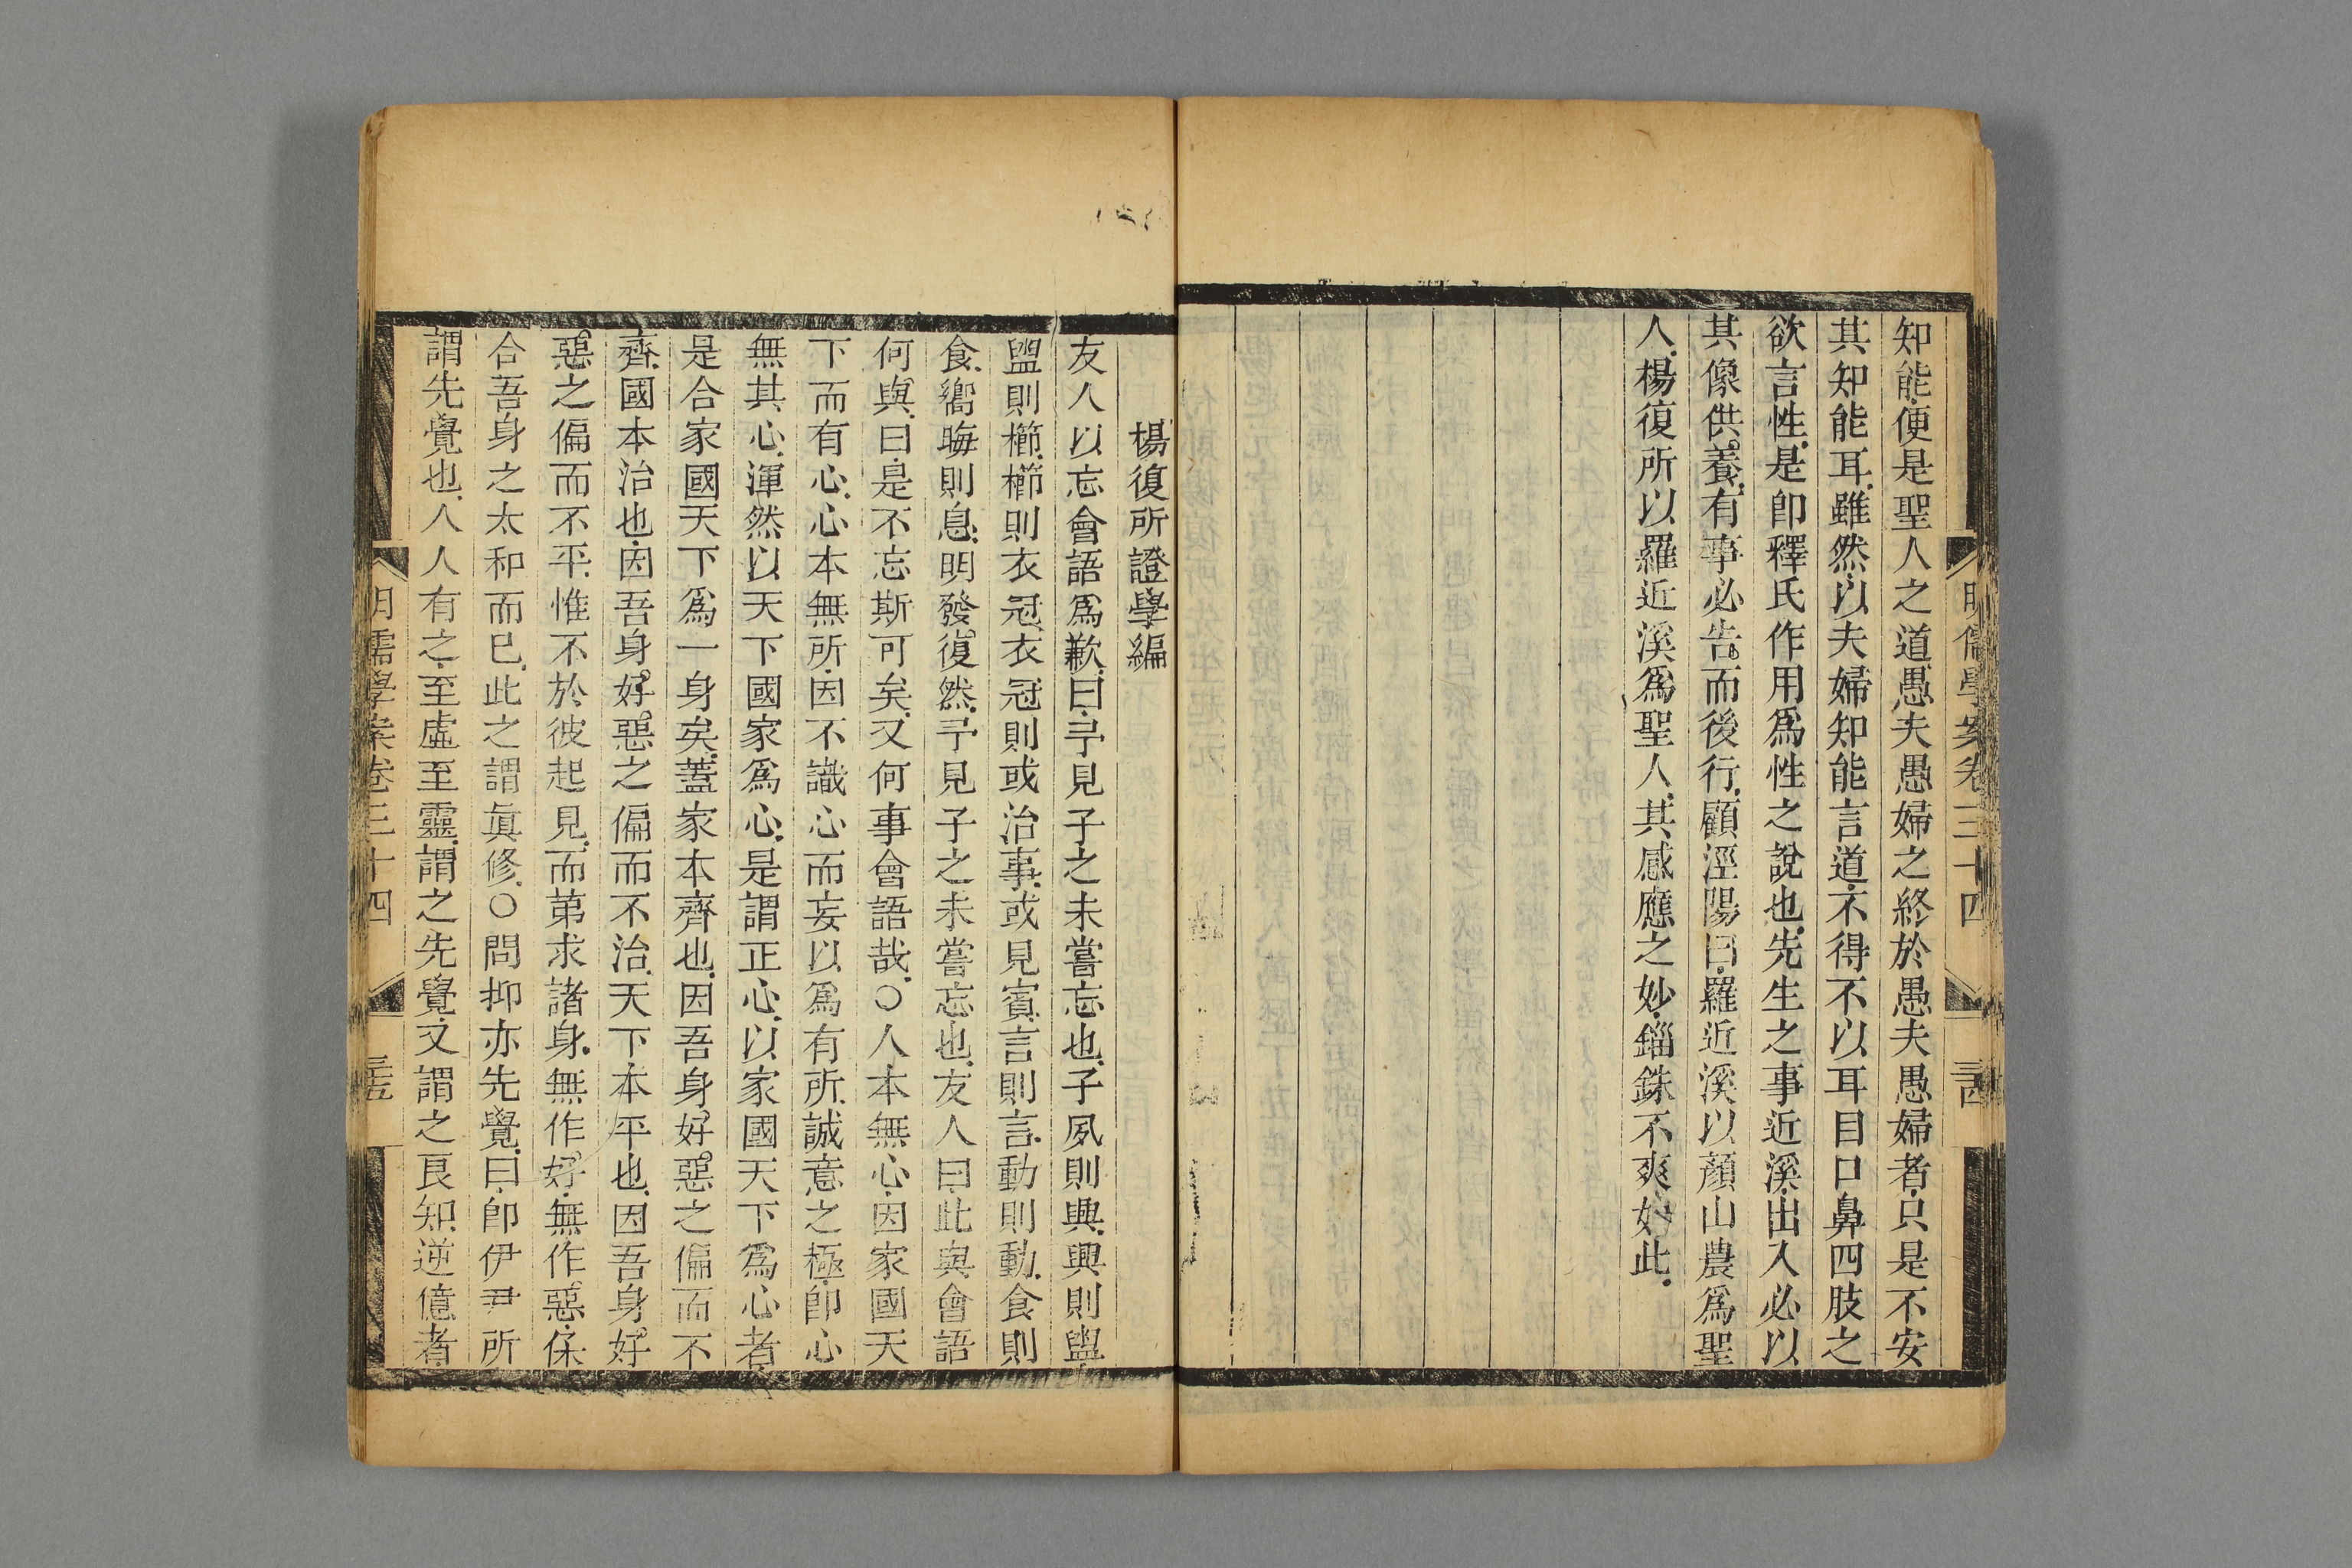 知能便是聖人之道愚夫愚婦之終於愚夫愚婦者只是不安
其知能耳雖然以夫婦知能言道不得不以耳目口鼻四肢之
欲言性是卽釋氏作用爲性之說也先生之事近溪出入必以
其像供養有事必告而後行顧涇陽曰羅近溪以顏山農爲聖
人楊復所以羅近溪爲聖人其感應之妙錙銖不爽如此
明儒學案卷三十四
楊復所證學編
友人以忘會語爲歉曰予見子之未嘗忘也子夙則興興則盥
盥則櫛櫛則衣冠衣冠則或治事或見賓言則言動則動食則
食嚮晦則息明發復然予見子之未嘗忘也友人曰此與會語
何與曰是不忘斯可矣又何事會語哉○人本無心因家國天
下而有心心本無所因不識心而妄以爲有所誠意之極卽心
無其心渾然以天下國家爲心是謂正心以家國天下爲心者
是合家國天下爲一身矣蓋家本齊也因吾身好惡之偏而不
齊國本治也因吾身好惡之偏而不治天下本平也因吾身好
惡之偏而不平惟不於彼起見而第求諸身無作好無作惡保
合吾身之太和而已此之謂眞修○問抑亦先覺曰卽伊尹所
謂先覺也人人有之至虛至靈謂之先覺又謂之良知逆億者
明儒學案卷三十四